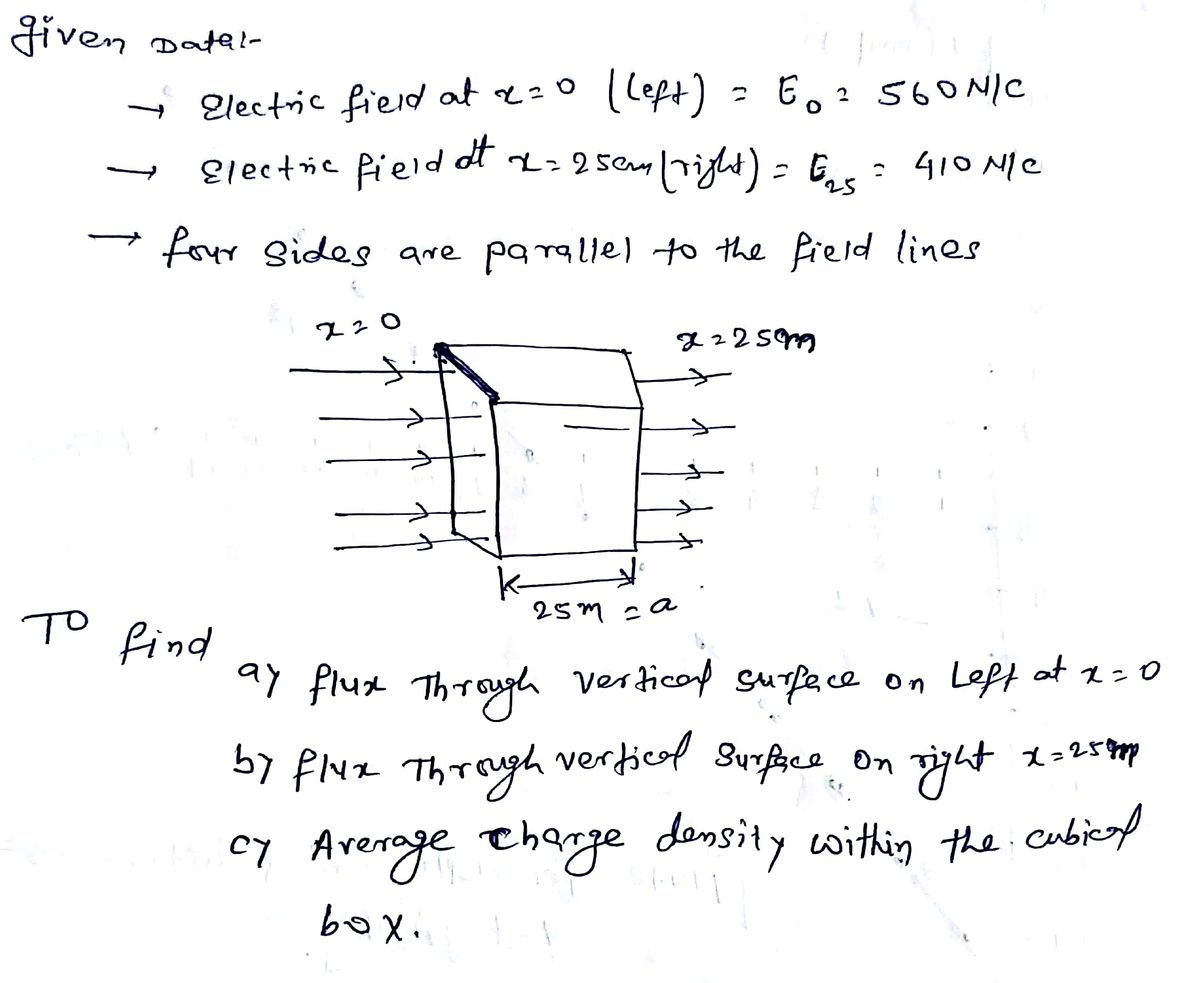 given Data:-
→ Electric field at x=0 (Left) = E₀ = 560 N/C
→ Electric field at x=25cm (right) = E₂₅ = 410 N/C
→ four sides are parallel to the field lines
x=0
x=25m
25m = a
To find
a) flux Through vertical surface on Left at x=0
b) flux Through vertical Surface on right x=25m
c) Average charge density within the cubical
box.